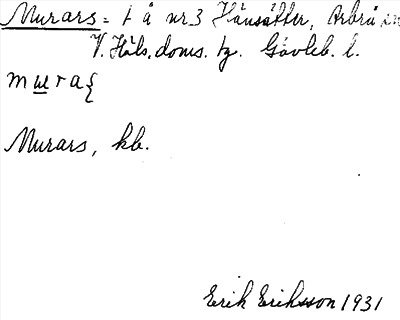 Murars = t å nr 3 Hänsätter, Arbrå sn
V. Häls. doms. tg. Gävleb. l.
Murars, kb.
Erik Eriksson 1931